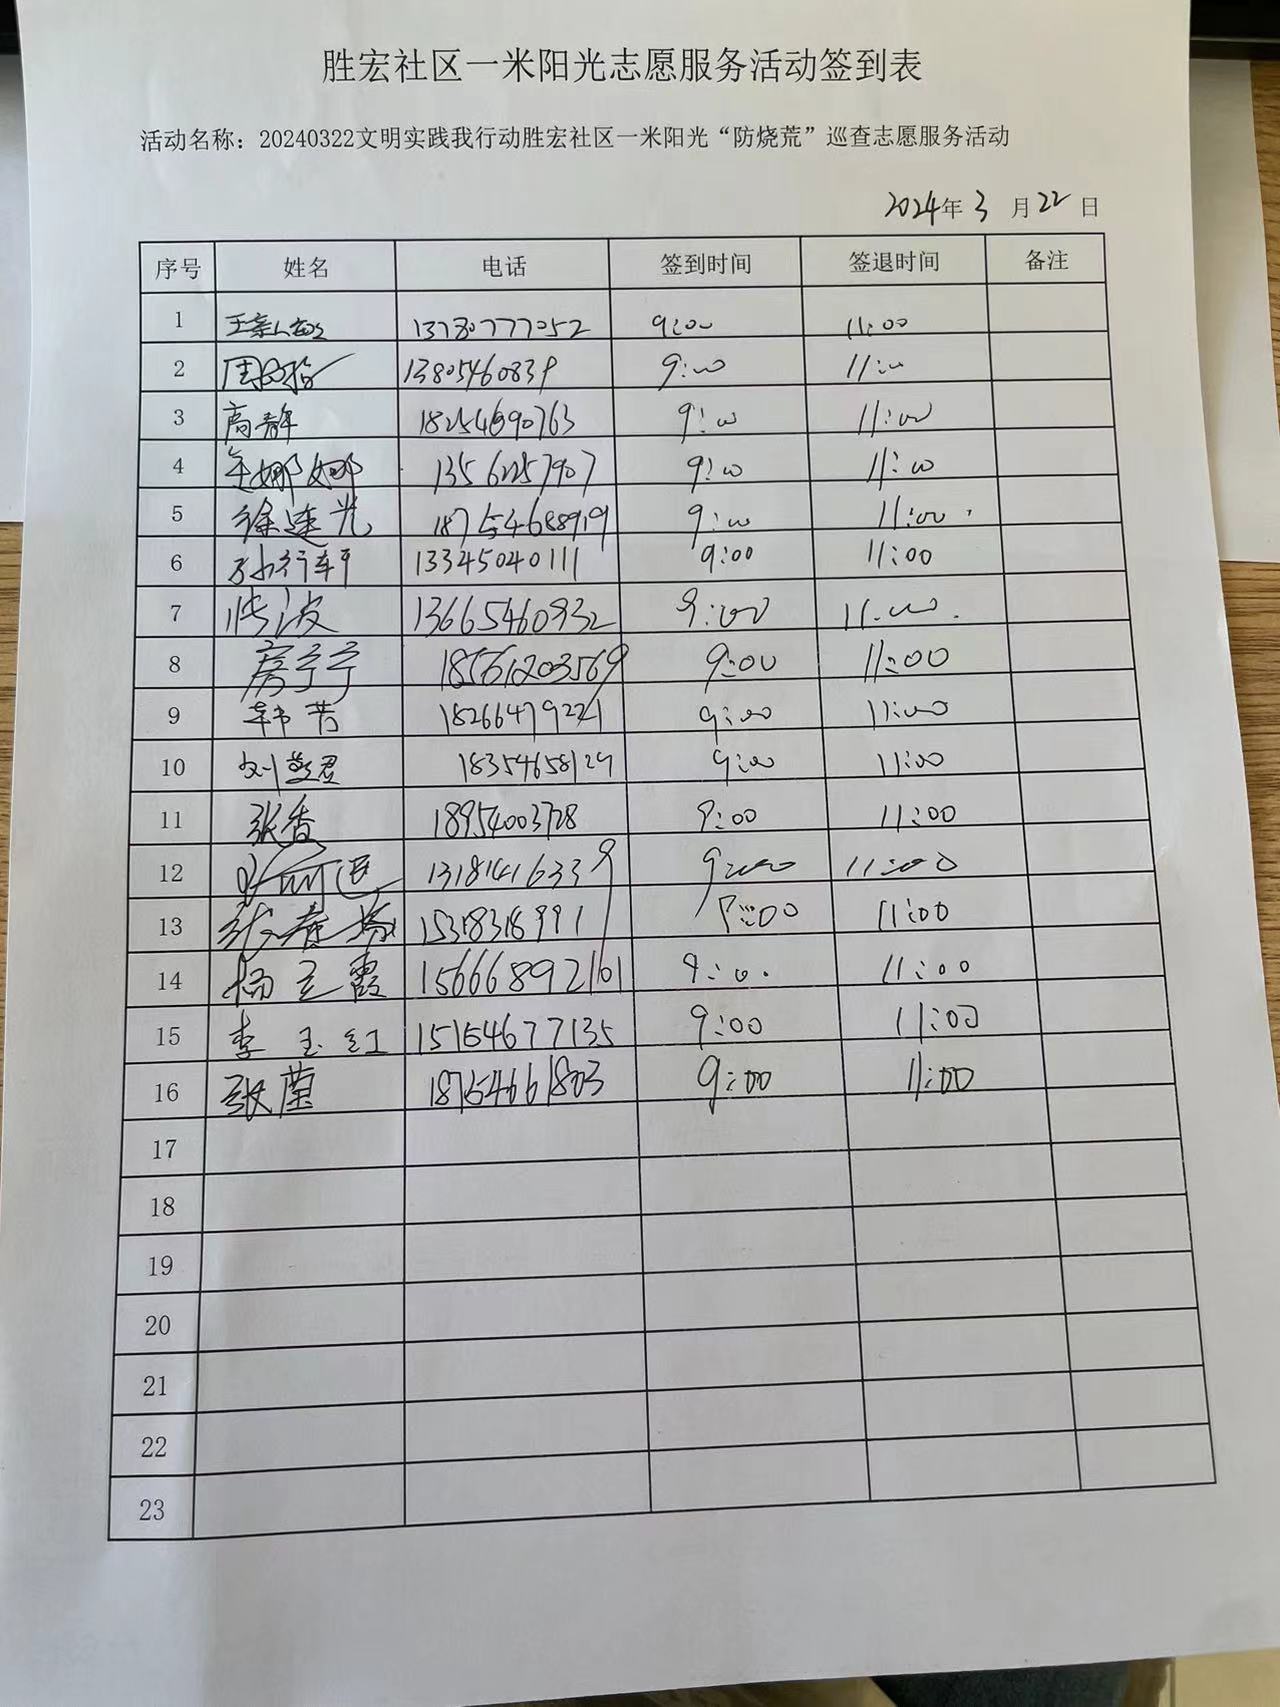 胜宏社区一米阳光志愿服务活动签到表
活动名称：20240322文明实践我行动胜宏社区一米阳光“防烧荒”巡查志愿服务活动
2024年3月22日
序号 姓名 电话 签到时间 签退时间 备注
1 13780777052 9:00 11:00
2 13805460839 9:00 11:00
3 高静 9:00 11:00
4 娜娜 9:00 11:00
5 徐连光 18754688919 9:00 11:00
6 13345040111 9:00 11:00
7 张波 13665460932 9:00 11:00
8 房宁宁 18561203569 9:00 11:00
9 韩芳 18266479221 9:00 11:00
10 18354658129 9:00 11:00
11 张香 18954003728 9:00 11:00
12 13181416339 9:00 11:00
13 张春 15318318991 9:00 11:00
14 杨立霞 15666892101 9:00 11:00
15 李玉红 15154677135 9:00 11:00
16 张莹 18754661803 9:00 11:00
17
18
19
20
21
22
23